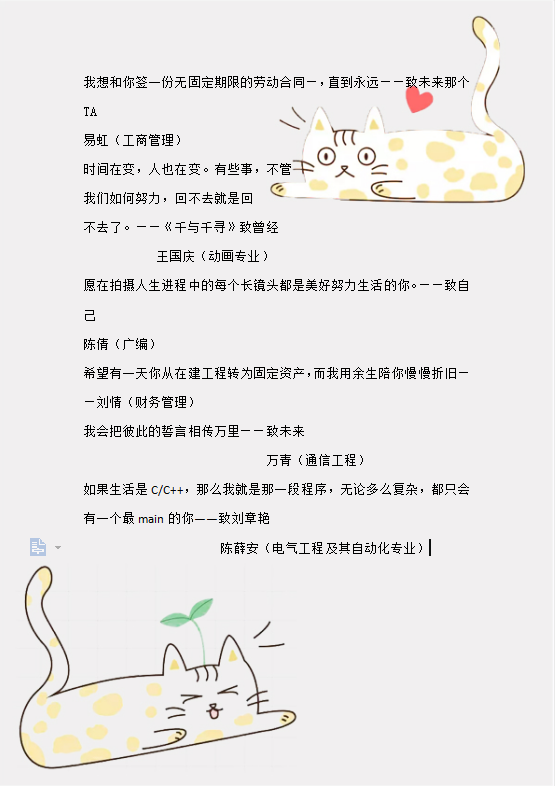 我想和你签一份无固定期限的劳动合同一，直到永远——致未来那个
TA
易虹（工商管理）
时间在变，人也在变。有些事，不管
我们如何努力，回不去就是回
不去了。——《千与千寻》致曾经
王国庆（动画专业）
愿在拍摄人生进程中的每个长镜头都是美好努力生活的你。——致自
己
陈倩（广编）
希望有一天你从在建工程转为固定资产，而我用余生陪你慢慢折旧—
—刘情（财务管理）
我会把彼此的誓言相传万里——致未来
万青（通信工程）
如果生活是 C/C++，那么我就是那一段程序，无论多么复杂，都只会
有一个最 main 的你——致刘章艳
陈薛安（电气工程及其自动化专业）